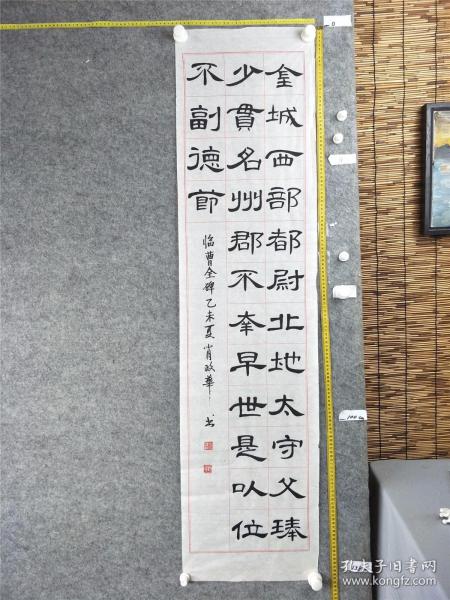 金城西部都尉北地太守父琫
少貫名州郡不幸早世是以位
不副德節
临曹全碑乙未夏肖政華书
孔夫子旧书网
www.kongfz.com